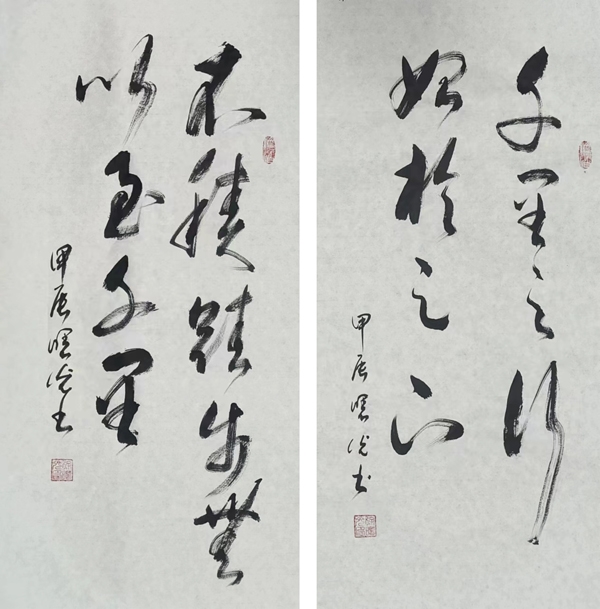 不積跬步無
以至千里
甲辰
千里之行
始於足下
甲辰